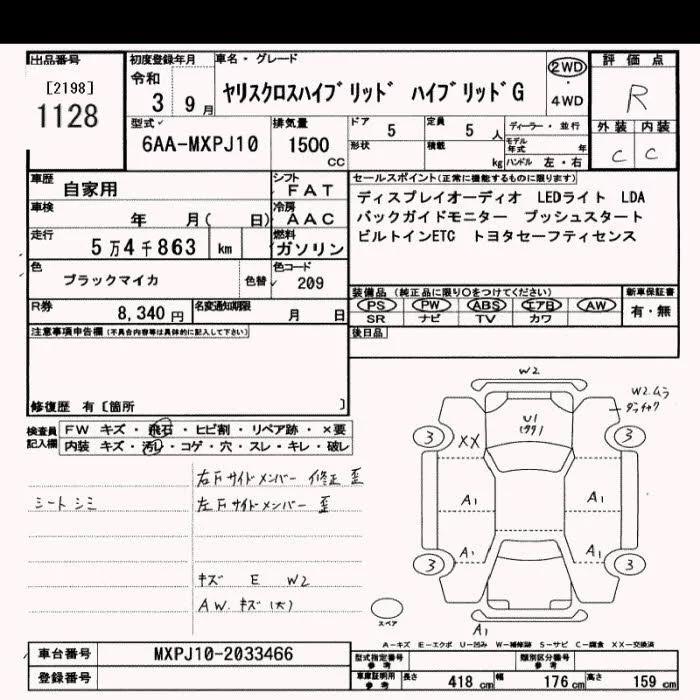 出品番号
[2198]
1128
初度登録年月
令和
3 9月
車名・グレード
ヤリスクロスハイブリッド ハイブリッドG
2WD
・
4WD
評価点
R
外装 内装
C C
型式
6AA-MXPJ10
排気量
1500
CC
ドア 5
形状
定員 5 人
積載 kg
ディーラー・並行
モデル年式 年
ハンドル 左・右
車歴 自家用
シフト
FAT
車検 年 月( 日)
冷房
AAC
走行 5万4千863 km
燃料
ガソリン
色 ブラックマイカ 色替
色コード
209
R券 8,340円
名変通知期限 月 日
セールスポイント(正常に機能するものに限ります)
ディスプレイオーディオ LEDライト LDA
バックガイドモニター プッシュスタート
ビルトインETC トヨタセーフティセンス
装備品 (純正品に限り〇をつけてください)
新車保証書
PS PW ABS エアB AW
SR ナビ TV カワ
有・無
後日品
注意事項申告欄(不具合内容等は具体的に記入して下さい)
修復歴 有〔箇所 〕
検査員記入欄
FW キズ・飛石・ヒビ割・リペア跡・×要
内装 キズ・汚れ・コゲ・穴・スレ・キレ・破レ
シート シミ
右Fサイドメンバー 修正 歪
左Fサイドメンバー 歪
キズ E W2
AW.キズ(大)
W2
W2ムラ
U1
3 XX 3
A1 A1
A1 A1
3 3
A1
スペア
A-キズ E-エクボ U-凹み W-補修跡 S-サビ C-腐食 XX-交換済
車台番号 MXPJ10-2033466
登録番号
型式指定番号
参考
類別区分番号
参考
車庫証明用
参考
長さ 418cm 幅 176cm 高さ 159cm